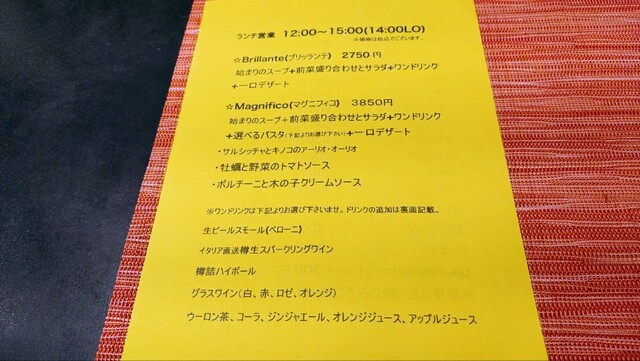 ランチ営業 12:00～15:00(14:00LO)
※価格は税込でございます。
☆Brillante(ブリッランテ) 2750円
始まりのスープ+前菜盛り合わせとサラダ+ワンドリンク
+一口デザート
☆Magnifico(マグニフィコ) 3850円
始まりのスープ+前菜盛り合わせとサラダ+ワンドリンク
+選べるパスタ(下記よりお選び下さい)+一口デザート
・サルシッチャとキノコのアーリオ・オーリオ
・牡蠣と野菜のトマトソース
・ポルチーニと木の子クリームソース
※ワンドリンクは下記よりお選び下さいませ。ドリンクの追加は裏面記載。
生ビールスモール(ペローニ)
イタリア直送樽生スパークリングワイン
樽詰ハイボール
グラスワイン(白、赤、ロゼ、オレンジ)
ウーロン茶、コーラ、ジンジャエール、オレンジジュース、アップルジュース